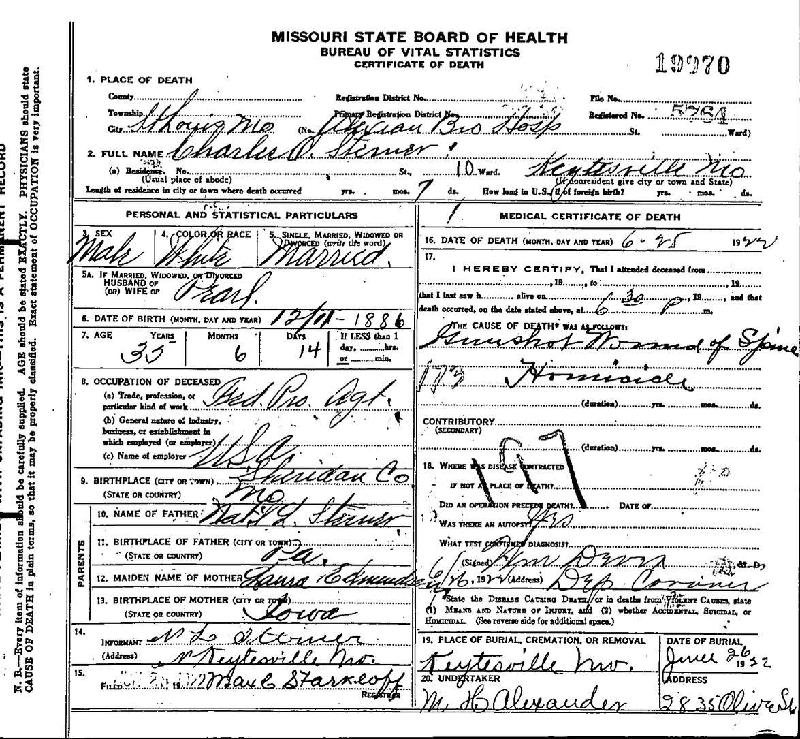 MISSOURI STATE BOARD OF HEALTH
BUREAU OF VITAL STATISTICS
CERTIFICATE OF DEATH
19970
1. PLACE OF DEATH
County
Registration District No.
File No.
Township
Primary Registration District No.
Registered No. 5764
City St Louis Mo (No. Alexian Bro Hosp St. Ward)
2. FULL NAME Charles O. Sterner
(a) Residence. No. St., 10 Ward. Keytesville Mo
(Usual place of abode) (If nonresident give city or town and State)
Length of residence in city or town where death occurred yrs. mos. 7 ds. How long in U.S., if of foreign birth? yrs. mos. ds.
PERSONAL AND STATISTICAL PARTICULARS
3. SEX 4. COLOR OR RACE 5. SINGLE, MARRIED, WIDOWED OR DIVORCED (write the word)
Male White Married.
5A. IF MARRIED, WIDOWED, OR DIVORCED
HUSBAND OF
(OR) WIFE OF Pearl.
6. DATE OF BIRTH (MONTH, DAY AND YEAR) 12/11-1886
7. AGE YEARS MONTHS DAYS If LESS than 1
35 6 14 day, hrs.
or min.
8. OCCUPATION OF DECEASED
(a) Trade, profession, or
particular kind of work Fed. Pro. Agt.
(b) General nature of industry,
business, or establishment in
which employed (or employer)
(c) Name of employer U.S.
9. BIRTHPLACE (CITY OR TOWN) Sheridan Co
(STATE OR COUNTRY) Mo
PARENTS
10. NAME OF FATHER Nat'l L. Sterner
11. BIRTHPLACE OF FATHER (CITY OR TOWN)
(STATE OR COUNTRY) Pa.
12. MAIDEN NAME OF MOTHER Laura Edmundson
13. BIRTHPLACE OF MOTHER (CITY OR TOWN)
(STATE OR COUNTRY) Iowa
14.
INFORMANT N L Sterner
(Address) Keytesville Mo.
15.
FILED 19 Max C Starkloff
REGISTRAR
MEDICAL CERTIFICATE OF DEATH
16. DATE OF DEATH (MONTH, DAY AND YEAR) 6-25 1922
17.
I HEREBY CERTIFY, That I attended deceased from
, 19 , to , 19
that I last saw h alive on , 19 , and that
death occurred, on the date stated above, at 6 30 p m.
THE CAUSE OF DEATH* WAS AS FOLLOWS:
Gunshot Wound of Spine
173 Homicide
(duration) yrs. mos. ds.
CONTRIBUTORY
(SECONDARY)
(duration) yrs. mos. ds.
197
18. WHERE WAS DISEASE CONTRACTED
IF NOT AT PLACE OF DEATH?
DID AN OPERATION PRECEDE DEATH? DATE OF
WAS THERE AN AUTOPSY? Yes
WHAT TEST CONFIRMED DIAGNOSIS?
(Signed) Wm Dever , M.D.
6/26, 1922 (Address) Dep Coroner
*State the DISEASE CAUSING DEATH, or in deaths from VIOLENT CAUSES, state
(1) MEANS AND NATURE OF INJURY, and (2) whether ACCIDENTAL, SUICIDAL, or
HOMICIDAL. (See reverse side for additional space.)
19. PLACE OF BURIAL, CREMATION, OR REMOVAL DATE OF BURIAL
Keytesville Mo. June 26 1922
20. UNDERTAKER ADDRESS
M. H. Alexander 2835 Olive St
N. B.—Every item of information should be carefully supplied. AGE should be stated EXACTLY. PHYSICIANS should state
CAUSE OF DEATH in plain terms, so that it may be properly classified. Exact statement of OCCUPATION is very important.